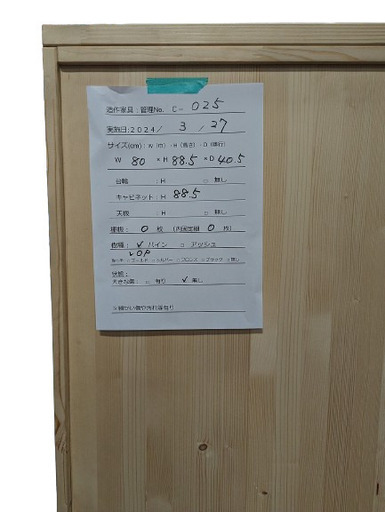 造作家具：管理No. C－025
実施日:2024/ 3 / 27
サイズ(cm)：W（巾）・H（高さ）・D（奥行）
W 80 ×H 88.5 ×D 40.5
台輪 ：H □ 無し
キャビネット：H 88.5
天板 ：H □ 無し
棚板： 0 枚 （内固定棚 0 枚）
樹種： ✓ パイン □ アッシュ
✓OP
状態：
大きな傷： □ 有り ✓ 無し
※細かい傷や汚れ等有り